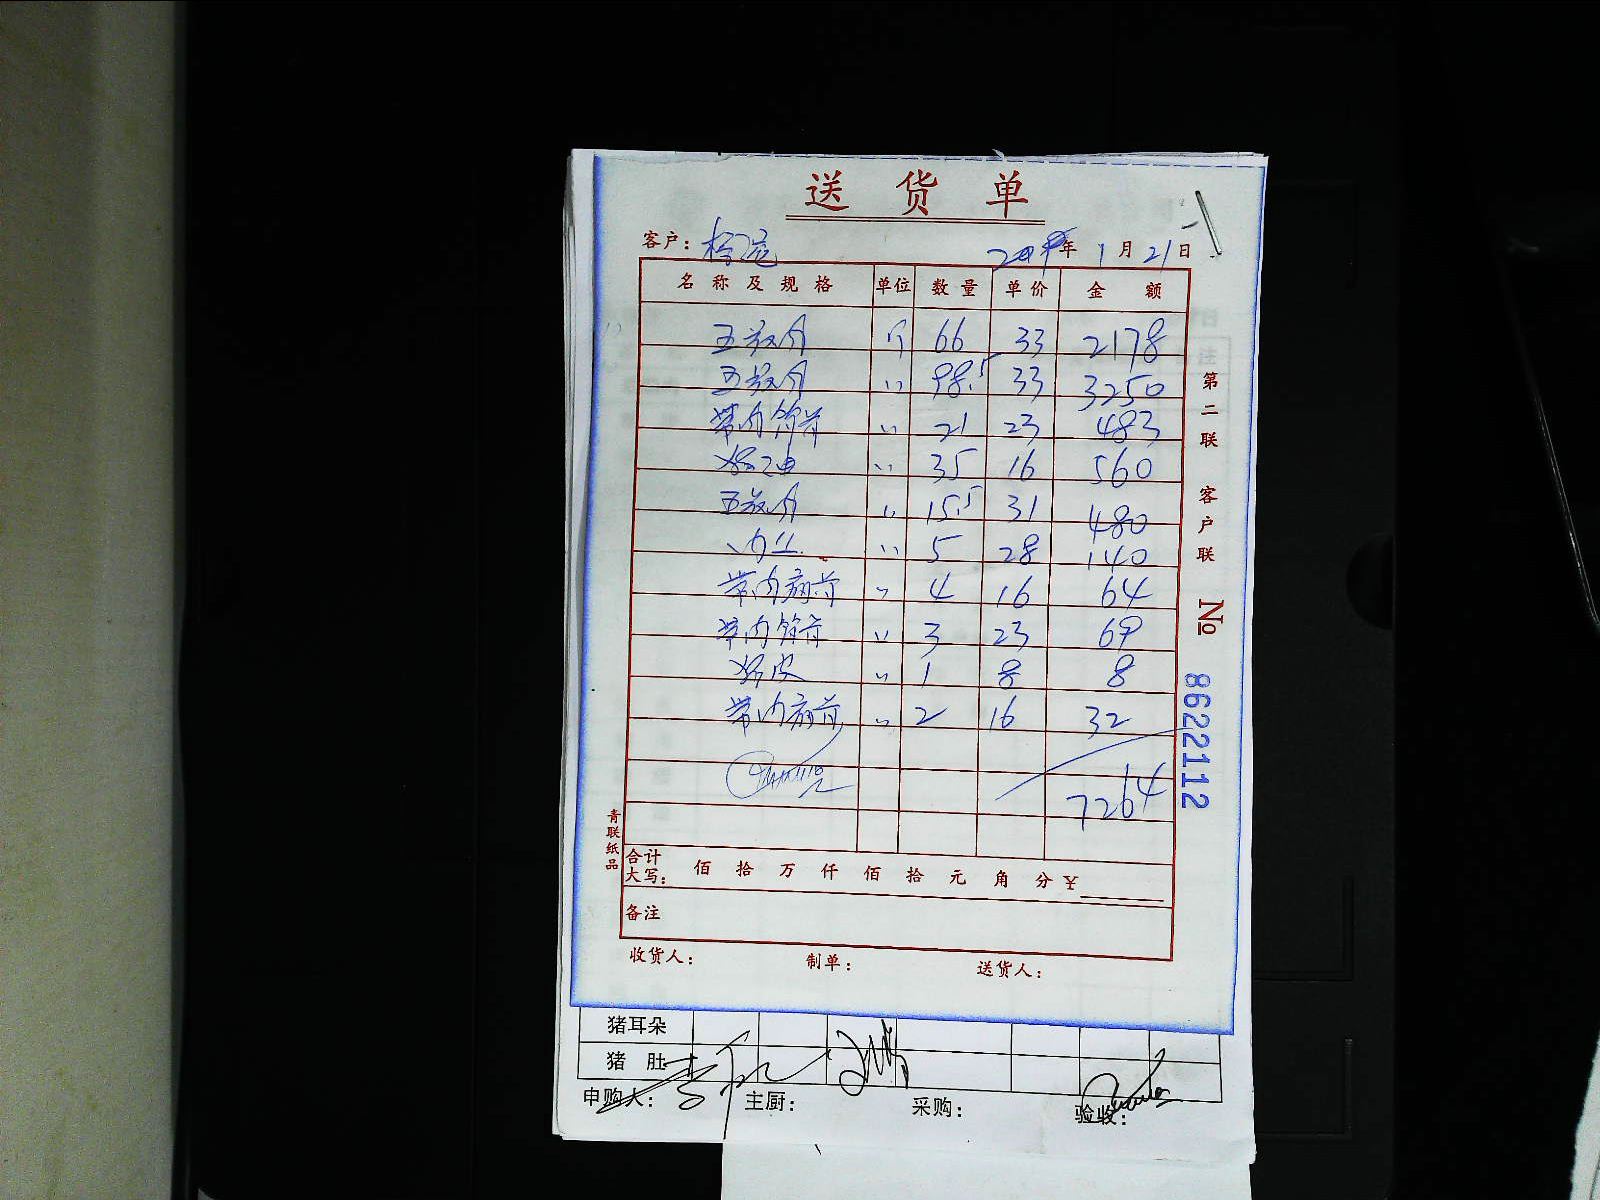 送货单
客户： 年 1 月 21 日
名称及规格 单位 数量 单价 金额
五花肉 斤 66 33 2178
五花肉 〃 98.5 33 3250
带肉 〃 21 23 483
猪油 〃 35 16 560
五花肉 〃 15.5 31 480
肉丝 〃 5 28 140
带肉 〃 4 16 64
带肉 〃 3 23 69
猪皮 〃 1 8 8
带肉 〃 2 16 32
7264
合计大写： 佰 拾 万 仟 佰 拾 元 角 分 ¥
备注
收货人： 制单： 送货人：
青联纸品
第二联 客户联 № 8622112
猪耳朵
猪 肚
申购人： 主厨： 采购： 验收：